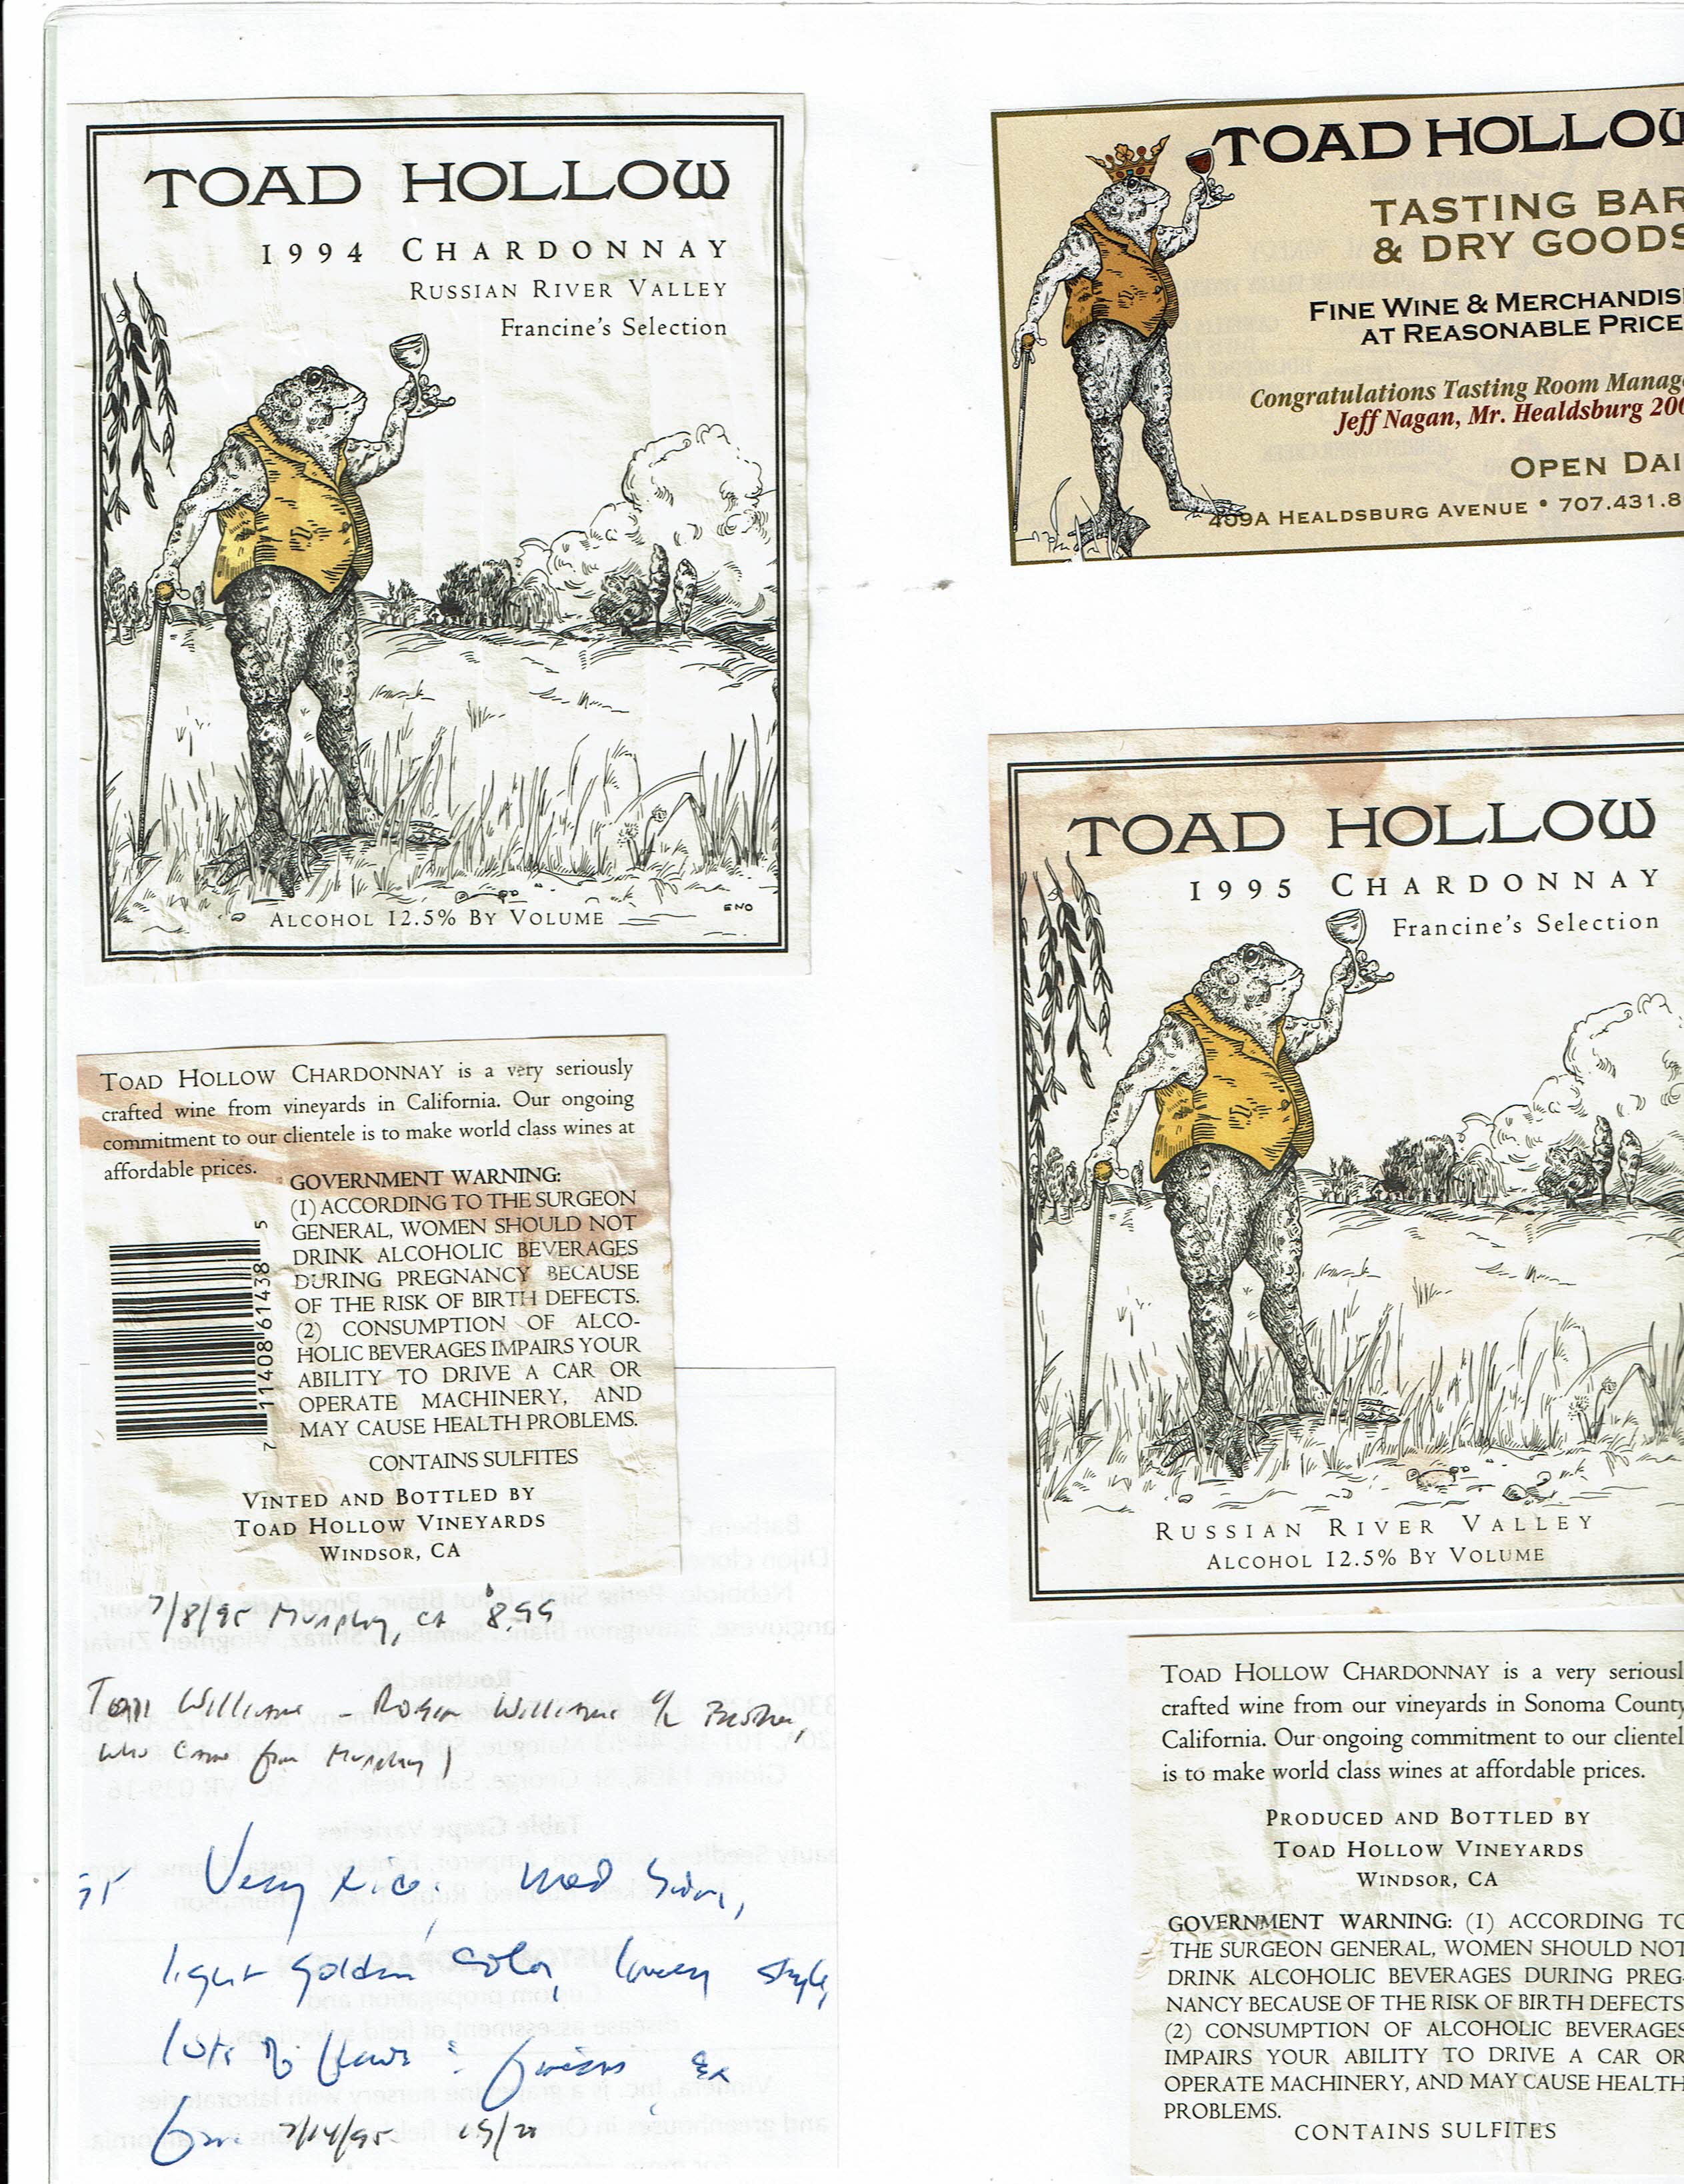 TOAD HOLLOW
1994 CHARDONNAY
RUSSIAN RIVER VALLEY
Francine's Selection
ENO
ALCOHOL 12.5% BY VOLUME
TOAD HOLLOW CHARDONNAY is a very seriously
crafted wine from vineyards in California. Our ongoing
commitment to our clientele is to make world class wines at
affordable prices.
GOVERNMENT WARNING:
(1) ACCORDING TO THE SURGEON
GENERAL, WOMEN SHOULD NOT
DRINK ALCOHOLIC BEVERAGES
DURING PREGNANCY BECAUSE
OF THE RISK OF BIRTH DEFECTS.
(2) CONSUMPTION OF ALCO-
HOLIC BEVERAGES IMPAIRS YOUR
ABILITY TO DRIVE A CAR OR
OPERATE MACHINERY, AND
MAY CAUSE HEALTH PROBLEMS.
7 11408 61438 5
CONTAINS SULFITES
VINTED AND BOTTLED BY
TOAD HOLLOW VINEYARDS
WINDSOR, CA
7/8/95 Murphy, CA 8.99
Todd Williams - Robin Williams 1/2 Brother,
who came from Murphy
Very nice, med
light golden color, lovely style,
lots of flavor &
7/14/95 15/20
TOAD HOLLOW
TASTING BAR
& DRY GOODS
FINE WINE & MERCHANDIS
AT REASONABLE PRICE
Congratulations Tasting Room Manag
Jeff Nagan, Mr. Healdsburg 200
OPEN DAI
409A HEALDSBURG AVENUE • 707.431.8
TOAD HOLLOW
1995 CHARDONNAY
Francine's Selection
RUSSIAN RIVER VALLEY
ALCOHOL 12.5% BY VOLUME
TOAD HOLLOW CHARDONNAY is a very seriousl
crafted wine from our vineyards in Sonoma County
California. Our ongoing commitment to our clientel
is to make world class wines at affordable prices.
PRODUCED AND BOTTLED BY
TOAD HOLLOW VINEYARDS
WINDSOR, CA
GOVERNMENT WARNING: (1) ACCORDING TO
THE SURGEON GENERAL, WOMEN SHOULD NOT
DRINK ALCOHOLIC BEVERAGES DURING PREG-
NANCY BECAUSE OF THE RISK OF BIRTH DEFECTS
(2) CONSUMPTION OF ALCOHOLIC BEVERAGES
IMPAIRS YOUR ABILITY TO DRIVE A CAR OR
OPERATE MACHINERY, AND MAY CAUSE HEALTH
PROBLEMS.
CONTAINS SULFITES